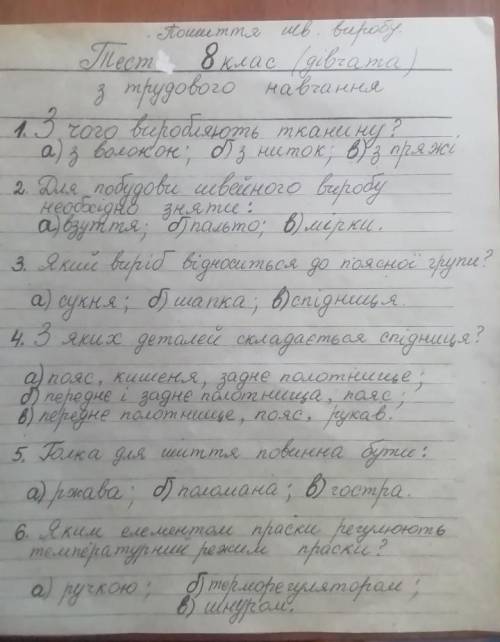 Пошиття шв. виробу.
Тест 8 клас (дівчата)
з трудового навчання
1. З чого виробляють тканину?
а) з волокон; б) з ниток; в) з пряжі
2. Для побудови швейного виробу
необхідно зняти:
а) взуття; б) пальто; в) мірки.
3. Який виріб відноситься до поясної групи?
а) сукня; б) шапка; в) спідниця.
4. З яких деталей складається спідниця?
а) пояс, кишеня, заднє полотнище;
б) переднє і заднє полотнища, пояс;
в) переднє полотнище, пояс, рукав.
5. Голка для шиття повинна бути:
а) ржава; б) поломана; в) гостра.
6. Яким елементом праски регулюють
температурний режим праски?
а) ручкою; б) терморегулятором;
в) шнуром.